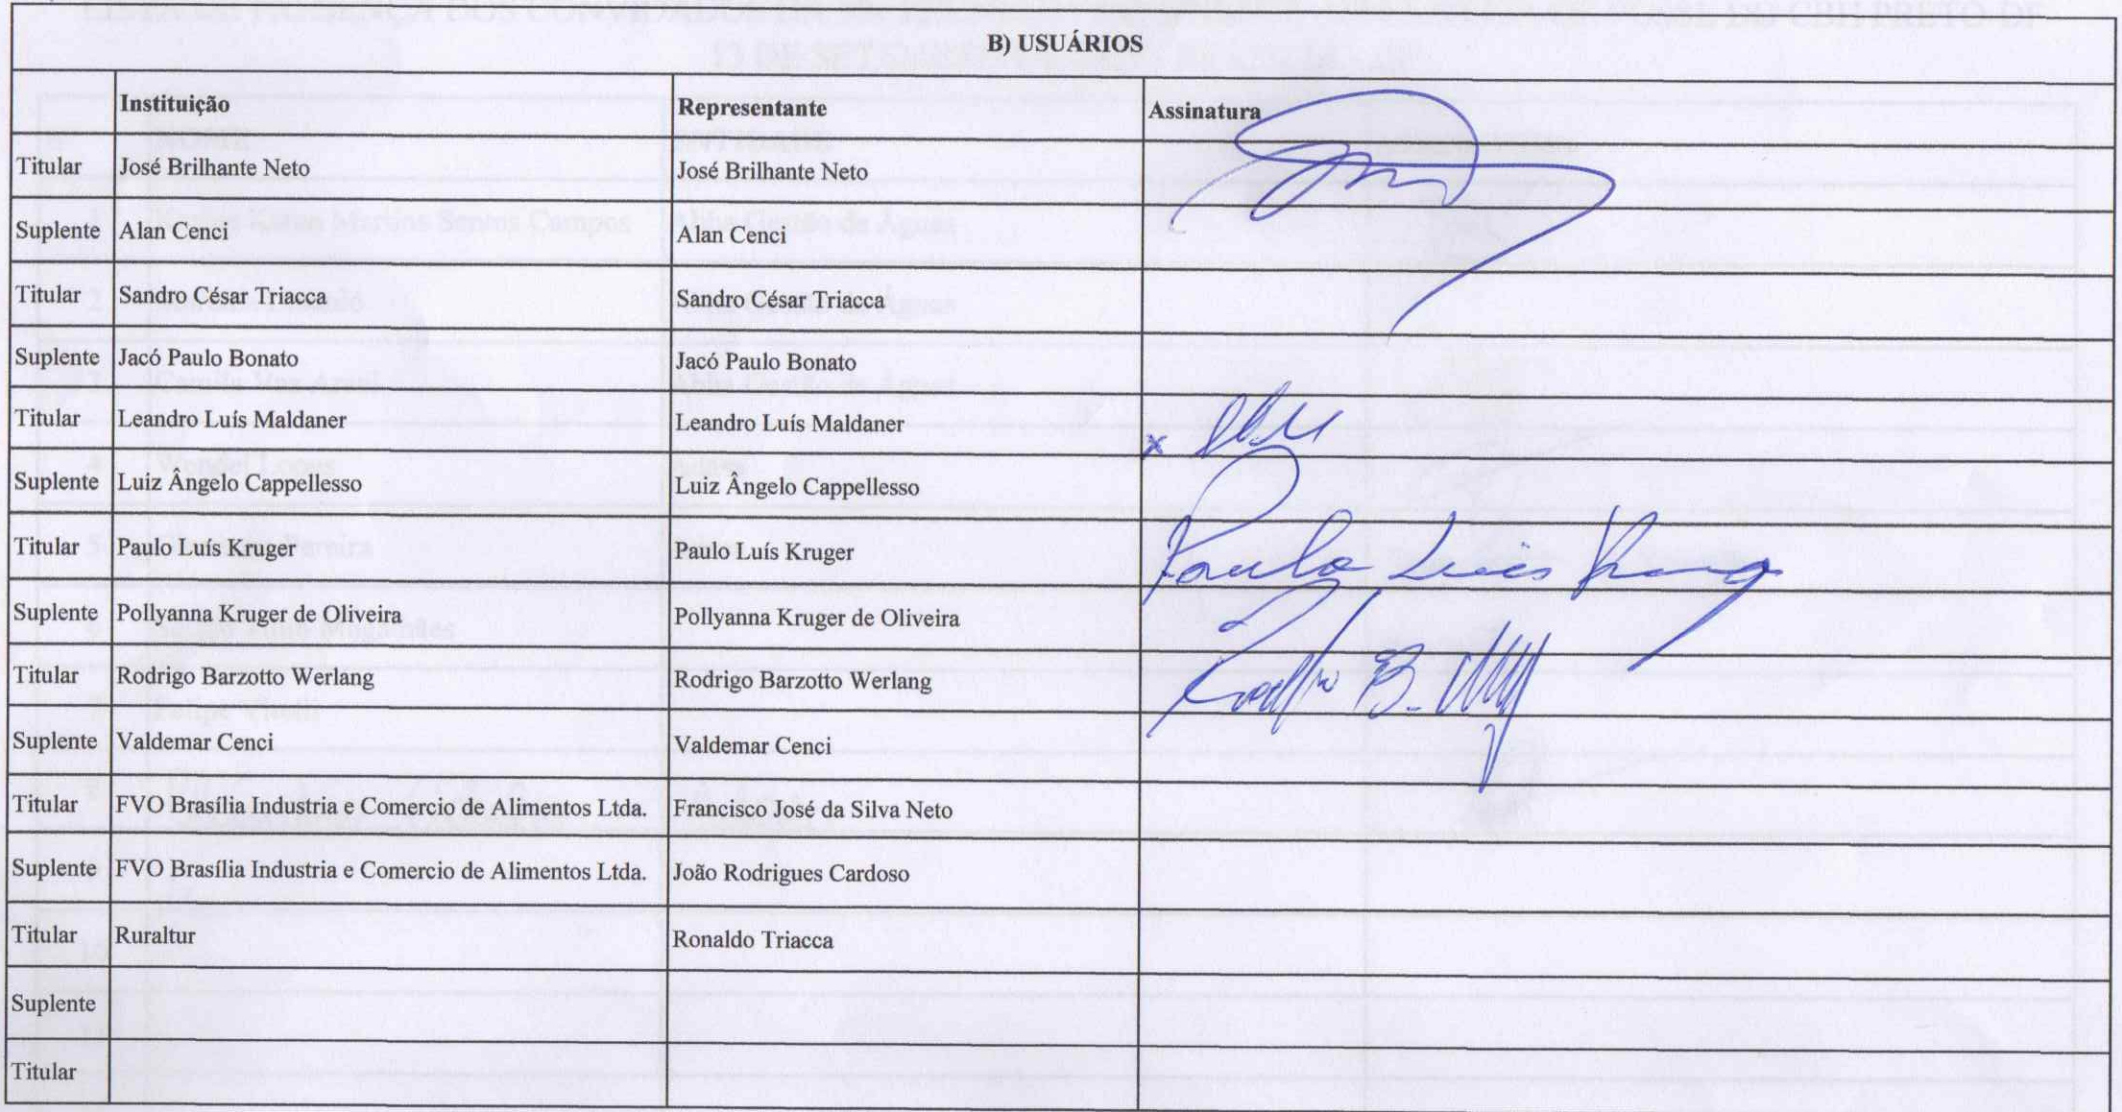 B) USUÁRIOS
Instituição Representante Assinatura
Titular José Brilhante Neto José Brilhante Neto
Suplente Alan Cenci Alan Cenci
Titular Sandro César Triacca Sandro César Triacca
Suplente Jacó Paulo Bonato Jacó Paulo Bonato
Titular Leandro Luís Maldaner Leandro Luís Maldaner x
Suplente Luiz Ângelo Cappellesso Luiz Ângelo Cappellesso
Titular Paulo Luís Kruger Paulo Luís Kruger Paulo Luis
Suplente Pollyanna Kruger de Oliveira Pollyanna Kruger de Oliveira
Titular Rodrigo Barzotto Werlang Rodrigo Barzotto Werlang
Suplente Valdemar Cenci Valdemar Cenci
Titular FVO Brasília Industria e Comercio de Alimentos Ltda. Francisco José da Silva Neto
Suplente FVO Brasília Industria e Comercio de Alimentos Ltda. João Rodrigues Cardoso
Titular Ruraltur Ronaldo Triacca
Suplente
Titular